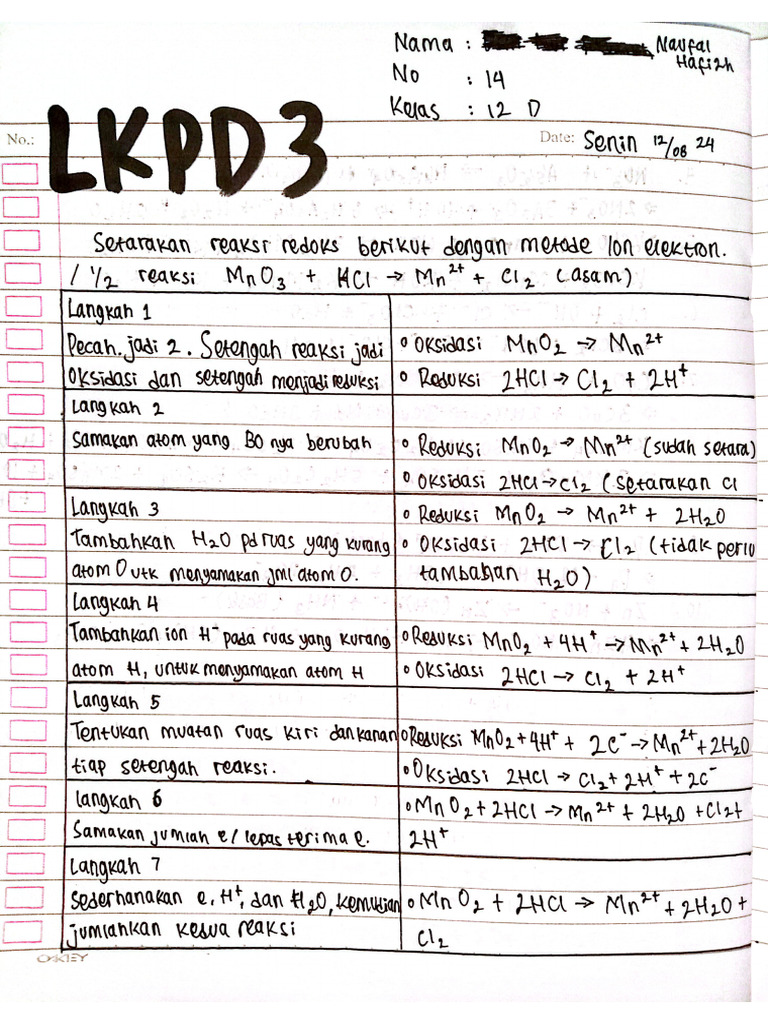 Nama : Naufal
Hafizh
No : 14
Kelas : 12 D
No.:
LKPD3
Date: Senin 12/08 24
Setarakan reaksi redoks berikut dengan metode Ion elektron.
/ 1/2 reaksi MnO3 + HCl → Mn2+ + Cl2 (asam)
Langkah 1
Pecah jadi 2. Setengah reaksi jadi
oksidasi dan setengah menjadi reduksi
o Oksidasi MnO2 → Mn2+
o Reduksi 2HCl → Cl2 + 2H+
Langkah 2
Samakan atom yang BO nya berubah
o Reduksi MnO2 → Mn2+ (sudah setara)
o Oksidasi 2HCl → Cl2 (setarakan Cl
Langkah 3
Tambahkan H2O pd ruas yang kurang
atom O utk menyamakan jml atom O.
o Reduksi MnO2 → Mn2+ + 2H2O
o Oksidasi 2HCl → Cl2 (tidak perlu
tambahan H2O)
Langkah 4
Tambahkan ion H- pada ruas yang kurang
atom H, untuk menyamakan atom H
o Reduksi MnO2 + 4H+ → Mn2+ + 2H2O
o Oksidasi 2HCl → Cl2 + 2H+
Langkah 5
Tentukan muatan ruas kiri dan kanan
tiap setengah reaksi.
o Reduksi MnO2 + 4H+ + 2C- → Mn2+ + 2H2O
o Oksidasi 2HCl → Cl2 + 2H+ + 2C-
langkah 6
Samakan jumlah e/ lepas terima e.
o MnO2 + 2HCl → Mn2+ + 2H2O + Cl2+
2H+
Langkah 7
sederhanakan e, H+, dan H2O, kemudian
jumlahkan kedua reaksi
o MnO2 + 2HCl → Mn2+ + 2H2O +
Cl2
OAKLEY